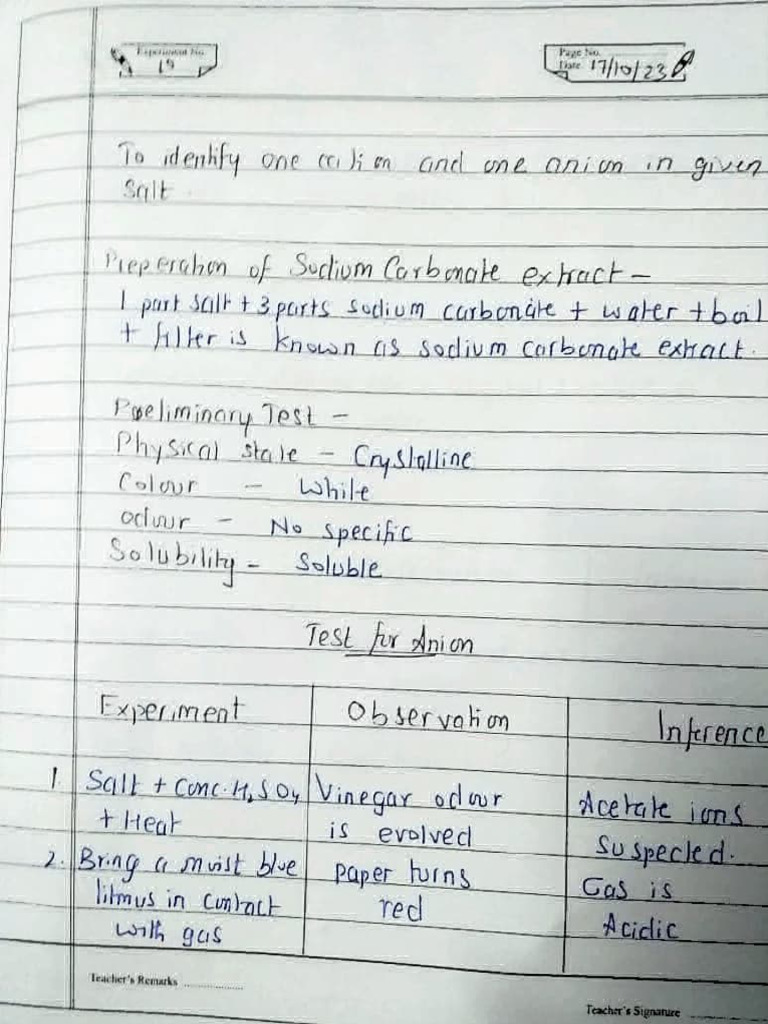 Experiment No.
19
Page No.
Date 17/10/23
To identify one cation and one anion in given
salt
Preperation of Sodium Carbonate extract -
1 part salt + 3 parts sodium carbonate + water + boil
+ filter is known as sodium carbonate extract.
Preliminary Test -
Physical state - Crystalline
Colour - White
odour - No specific
Solubility - Soluble
Test for Anion
Experiment Observation Inference
1. Salt + conc. H₂SO₄ Vinegar odour Acetate ions
+ Heat is evolved suspected.
2. Bring a moist blue paper turns Gas is
litmus in contact red Acidic
with gas
Teacher's Remarks ..................
Teacher's Signature ..................